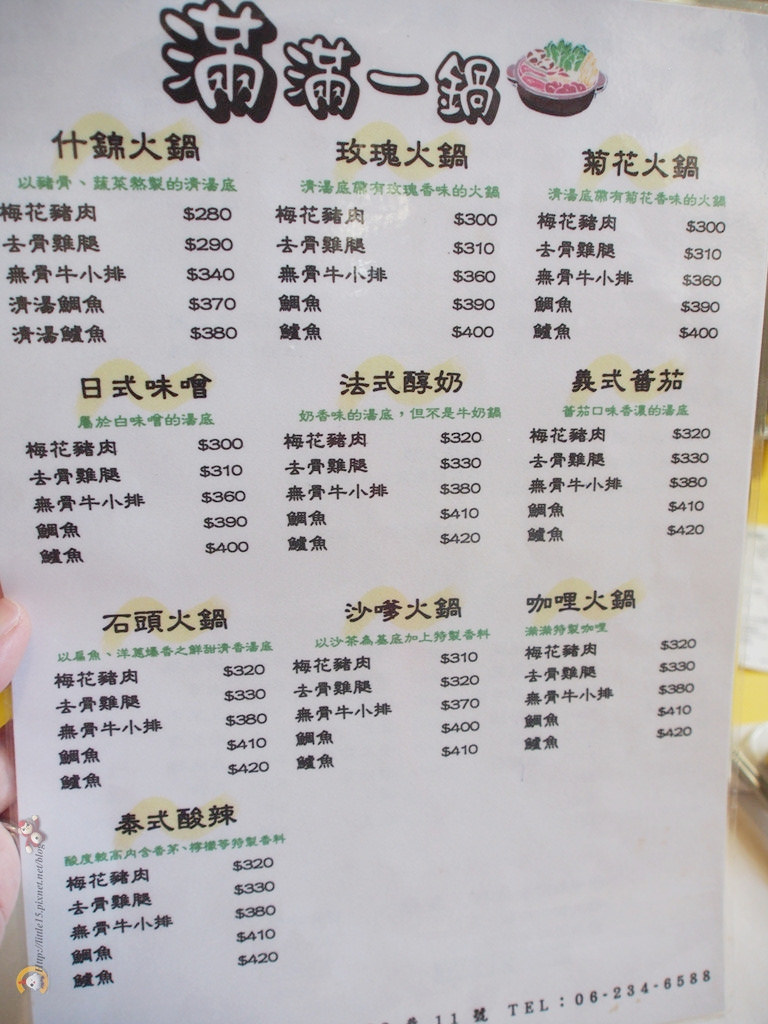 滿滿一鍋
什錦火鍋
以豬骨、蔬菜熬製的清湯底
梅花豬肉 $280
去骨雞腿 $290
無骨牛小排 $340
清湯鯛魚 $370
清湯鱸魚 $380
玫瑰火鍋
清湯底帶有玫瑰香味的火鍋
梅花豬肉 $300
去骨雞腿 $310
無骨牛小排 $360
鯛魚 $390
鱸魚 $400
菊花火鍋
清湯底帶有菊花香味的火鍋
梅花豬肉 $300
去骨雞腿 $310
無骨牛小排 $360
鯛魚 $390
鱸魚 $400
日式味噌
屬於白味噌的湯底
梅花豬肉 $300
去骨雞腿 $310
無骨牛小排 $360
鯛魚 $390
鱸魚 $400
法式醇奶
奶香味的湯底，但不是牛奶鍋
梅花豬肉 $320
去骨雞腿 $330
無骨牛小排 $380
鯛魚 $410
鱸魚 $420
義式蕃茄
蕃茄口味香濃的湯底
梅花豬肉 $320
去骨雞腿 $330
無骨牛小排 $380
鯛魚 $410
鱸魚 $420
石頭火鍋
以扁魚、洋蔥爆香之鮮甜清香湯底
梅花豬肉 $320
去骨雞腿 $330
無骨牛小排 $380
鯛魚 $410
鱸魚 $420
沙嗲火鍋
以沙茶為基底加上特製香料
梅花豬肉 $310
去骨雞腿 $320
無骨牛小排 $370
鯛魚 $400
鱸魚 $410
咖哩火鍋
滿滿特製咖哩
梅花豬肉 $320
去骨雞腿 $330
無骨牛小排 $380
鯛魚 $410
鱸魚 $420
泰式酸辣
酸度較高內含香茅、檸檬等特製香料
梅花豬肉 $320
去骨雞腿 $330
無骨牛小排 $380
鯛魚 $410
鱸魚 $420
11 號 TEL：06-234-6588
http://little15.pixnet.net/blog